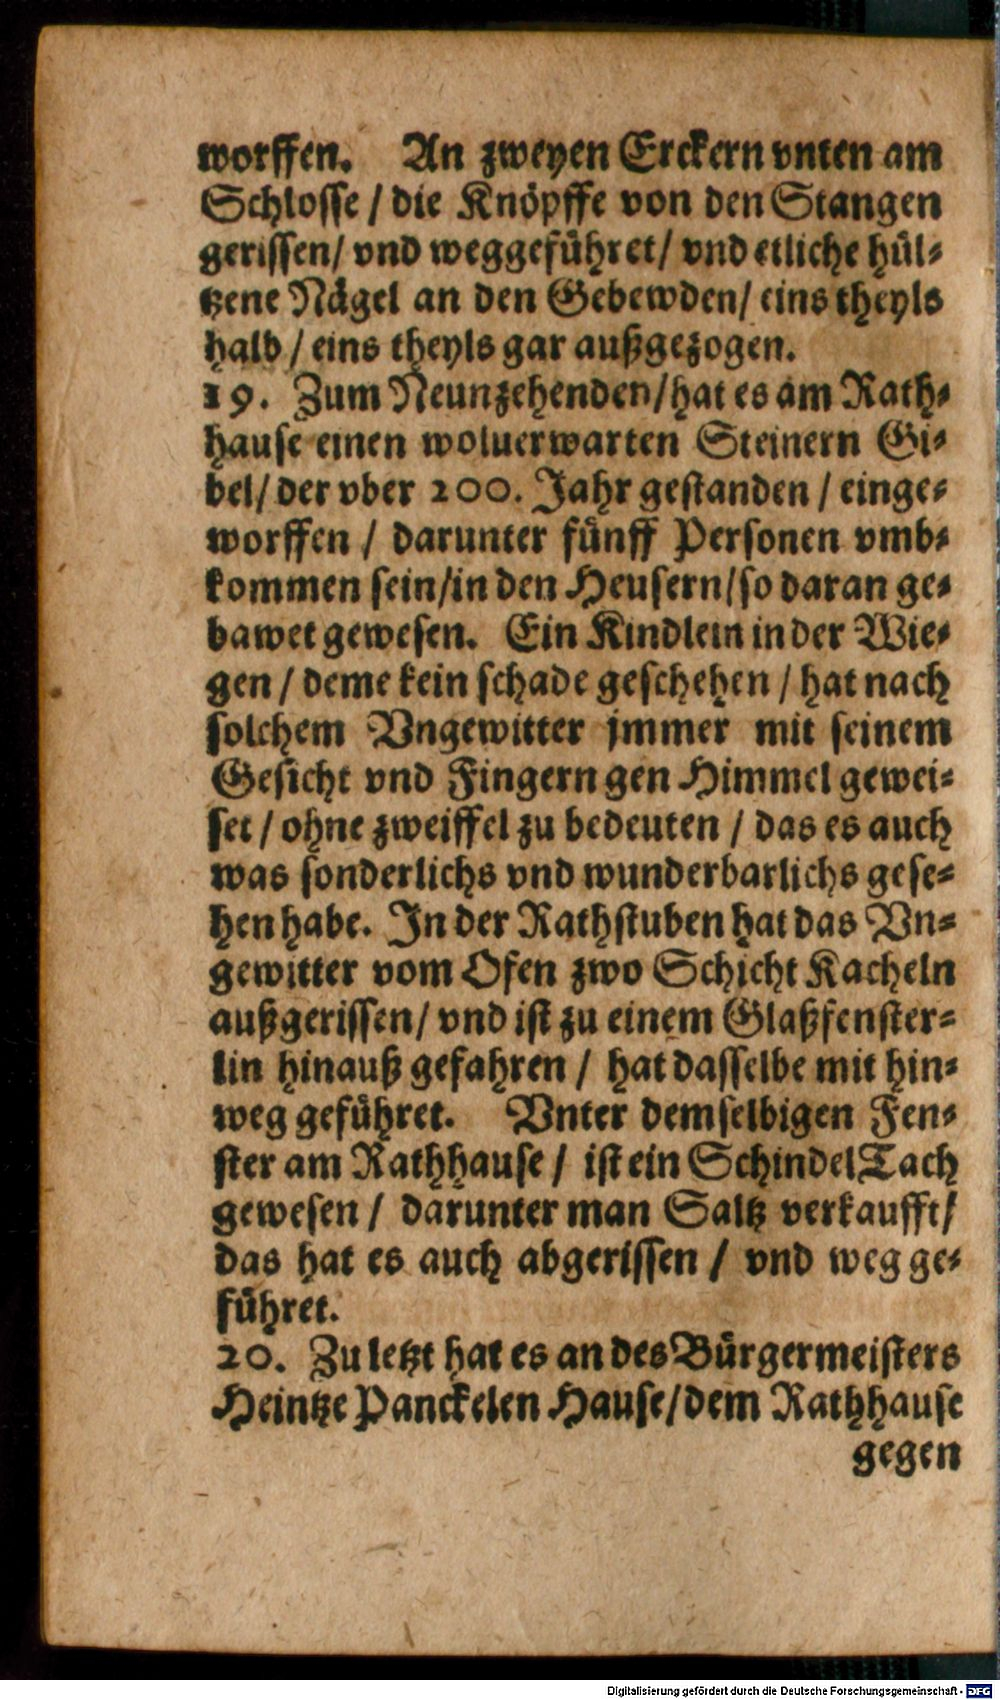 worffen. An zweyen Erckern vnten am
Schlosse / die Knöpffe von den Stangen
gerissen/ vnd weggeführet/ vnd etliche hül-
tzene Nägel an den Gebewden/ eins theyls
halb / eins theyls gar außgezogen.
19. Zum Neunzehenden/hat es am Rath-
hause einen woluerwarten Steinern Gi-
bel/ der vber 200. Jahr gestanden / einge-
worffen / darunter fünff Personen vmb-
kommen sein/in den Heusern/so daran ge-
bawet gewesen. Ein Kindlein in der Wie-
gen / deme kein schade geschehen / hat nach
solchem Vngewitter jmmer mit seinem
Gesicht vnd Fingern gen Himmel gewei-
set / ohne zweiffel zu bedeuten / das es auch
was sonderlichs vnd wunderbarlichs gese-
hen habe. In der Rathstuben hat das Vn-
gewitter vom Ofen zwo Schicht Kacheln
außgerissen/ vnd ist zu einem Glaßfenster-
lin hinauß gefahren / hat dasselbe mit hin-
weg geführet. Vnter demselbigen Fen-
ster am Rathhause / ist ein Schindel Tach
gewesen / darunter man Saltz verkaufft/
das hat es auch abgerissen / vnd weg ge-
führet.
20. Zu letzt hat es an des Bürgermeisters
Heintze Panckelen Hause/dem Rathhause
gegen
Digitalisierung gefördert durch die Deutsche Forschungsgemeinschaft - DFG